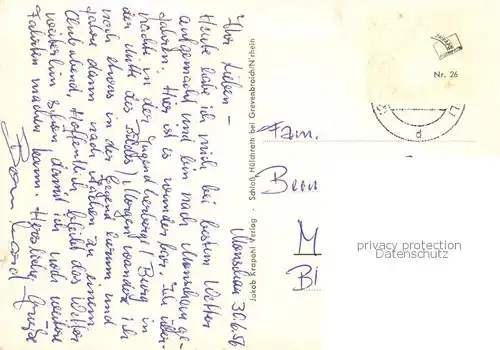 Monschau 30.6.56
Ihr Lieben –
Heute habe ich mich bei bestem Wetter
aufgemacht und bin nach Monschau ge-
fahren. Hier ist es wunderbar. Ich über-
nachte in der Jugendherberge (Burg in
der Mitte des Bildes). Morgen wandere ich
noch etwas in der Gegend herum und
fahre dann nach Aachen zu einem
Clubabend. Hoffentlich bleibt das Wetter
weiterhin schön, damit ich noch weitere
Fahrten machen kann. Herzliche Grüße
Jakob Krapohl Verlag · Schloß Hülchrath bei Grevenbroich/N'rhein
Nr. 26
Fam.
Bern
M
Bi
privacy protection
Datenschutz